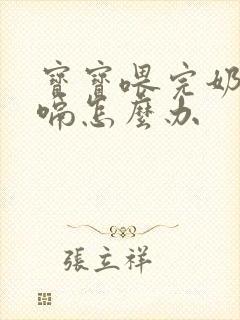 寶寶喂完奶
喘怎麼办
張立祥